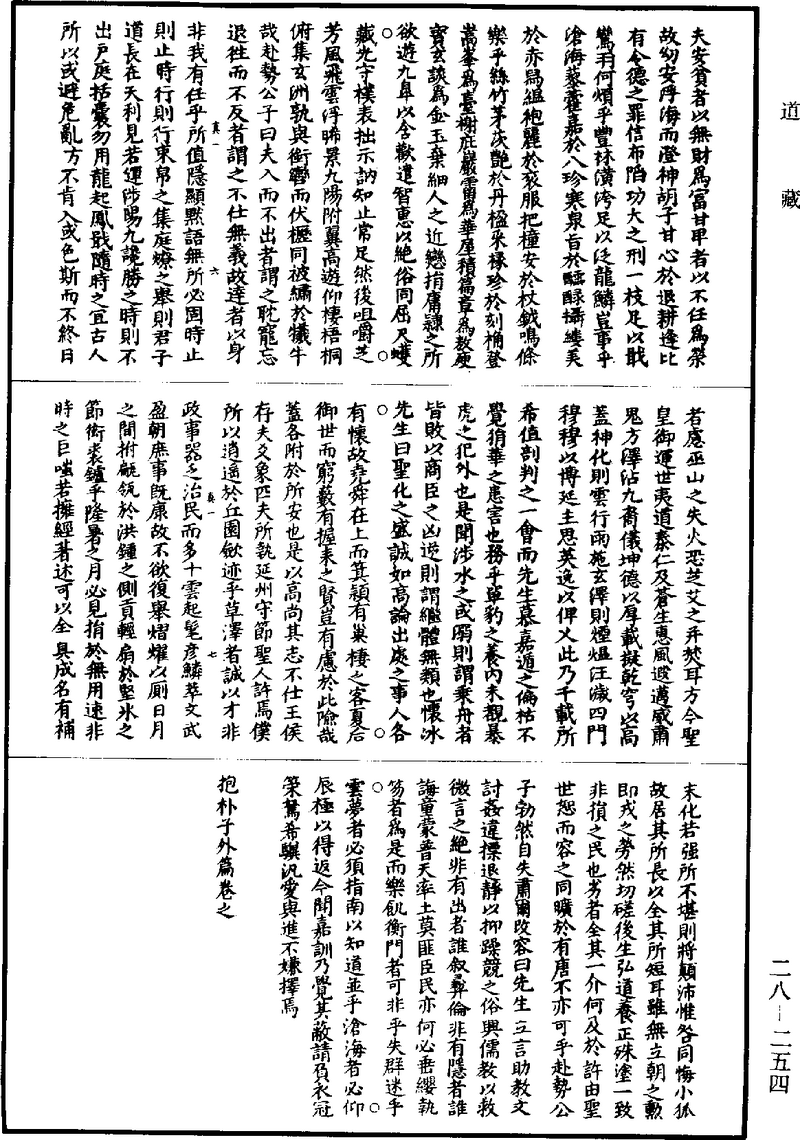 道藏
夫安貧者以無財爲富甘卑者以不仕爲榮
故幼安浮海而澄神胡子甘心於退耕逢比
有令德之罪信布陷功大之刑一枝足以戢
鸞羽何煩乎豐林潢洿足以泛龍鱗豈事乎
滄海藜藿嘉於八珍寒泉旨於醽醁攝縷美
於赤舄縕袍麗於衮服把橦安於杖鉞鳴條
樂乎絲竹茅茨艶於丹楹采椽珍於刻桷登
嵩峯爲臺榭庇巖霤爲華屋積篇章爲敖庾
寶玄談爲金玉棄細人之近戀捐庸隸之所
欲遊九臯以含歡遣智惠以絶俗同屈尺蠖
藏光守樸表拙示訥知止常足然後咀嚼芝
芳風飛雲浮晞景九陽附翼高遊仰棲梧桐
俯集玄洲孰與銜轡而伏櫪同被繡於犧牛
哉赴勢公子曰夫入而不出者謂之耽寵忘
退往而不反者謂之不仕無義故達者以身
真一 六
非我有任乎所值隱顯默語無所必固時止
則止時行則行束帛之集庭燎之舉則君子
道長在天利見若運涉陽九讒勝之時則不
出戶庭括囊勿用龍起鳳戢隨時之宜古人
所以或避危亂方不肯入或色斯而不終日
者慮巫山之失火恐芝艾之并焚耳方今聖
皇御運世夷道泰仁及蒼生惠風遐邁威肅
鬼方澤沾九裔儀坤德以厚載擬乾穹以高
蓋神化則雲行雨施玄澤則煙熅汪濊四門
穆穆以博延主思英逸以俾乂此乃千載所
希值剖判之一會而先生慕嘉遁之偏枯不
覺狷華之患害也務乎單豹之養內未覩暴
虎之犯外也是聞涉水之或溺則謂乘舟者
皆敗以商臣之凶逆則謂繼體無類也懷冰
先生曰聖化之盛誠如高論出處之事人各
有懷故堯舜在上而箕潁有巢棲之客夏后
御世而窮藪有握耒之賢豈有慮於此險哉
蓋各附於所安也是以高尚其志不仕王侯
存夫爻象匹夫所執延州守節聖人許焉僕
所以逍遥於丘園斂迹乎草澤者誠以才非
真一 七
政事器乏治民而多士雲起髦彥鱗萃文武
盈朝庶事旣康故不欲復舉熠燿以厠日月
之間拊甂瓴於洪鍾之側貢輕扇於堅冰之
節衒裘鑪乎隆暑之月必見捐於無用速非
時之巨嗤若擁經著述可以全真成名有補
末化若强所不堪則將顛沛惟咎同悔小狐
故居其所長以全其所短耳雖無立朝之勳
即戎之勞然切磋後生弘道養正殊塗一致
非損之民也劣者全其一介何及於許由聖
世恕而容之同曠於有唐不亦可乎赴勢公
子勃然自失肅爾改容曰先生立言助教文
討姦違摽退靜以抑躁競之俗興儒教以救
微言之絶非有出者誰叙彝倫非有隱者誰
誨童蒙普天率土莫匪臣民亦何必垂纓執
笏者爲是而樂飢衡門者可非乎夫群迷乎
雲夢者必須指南以知道並乎滄海者必仰
辰極以得返今聞嘉訓乃覺其蔽請負衣冠
策駑希驥汎愛與進不嫌擇焉
抱朴子外篇卷之
二八—二五四